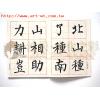 http://www.art-wn.com.tw
北山種
了種南
山相助
力耕豈